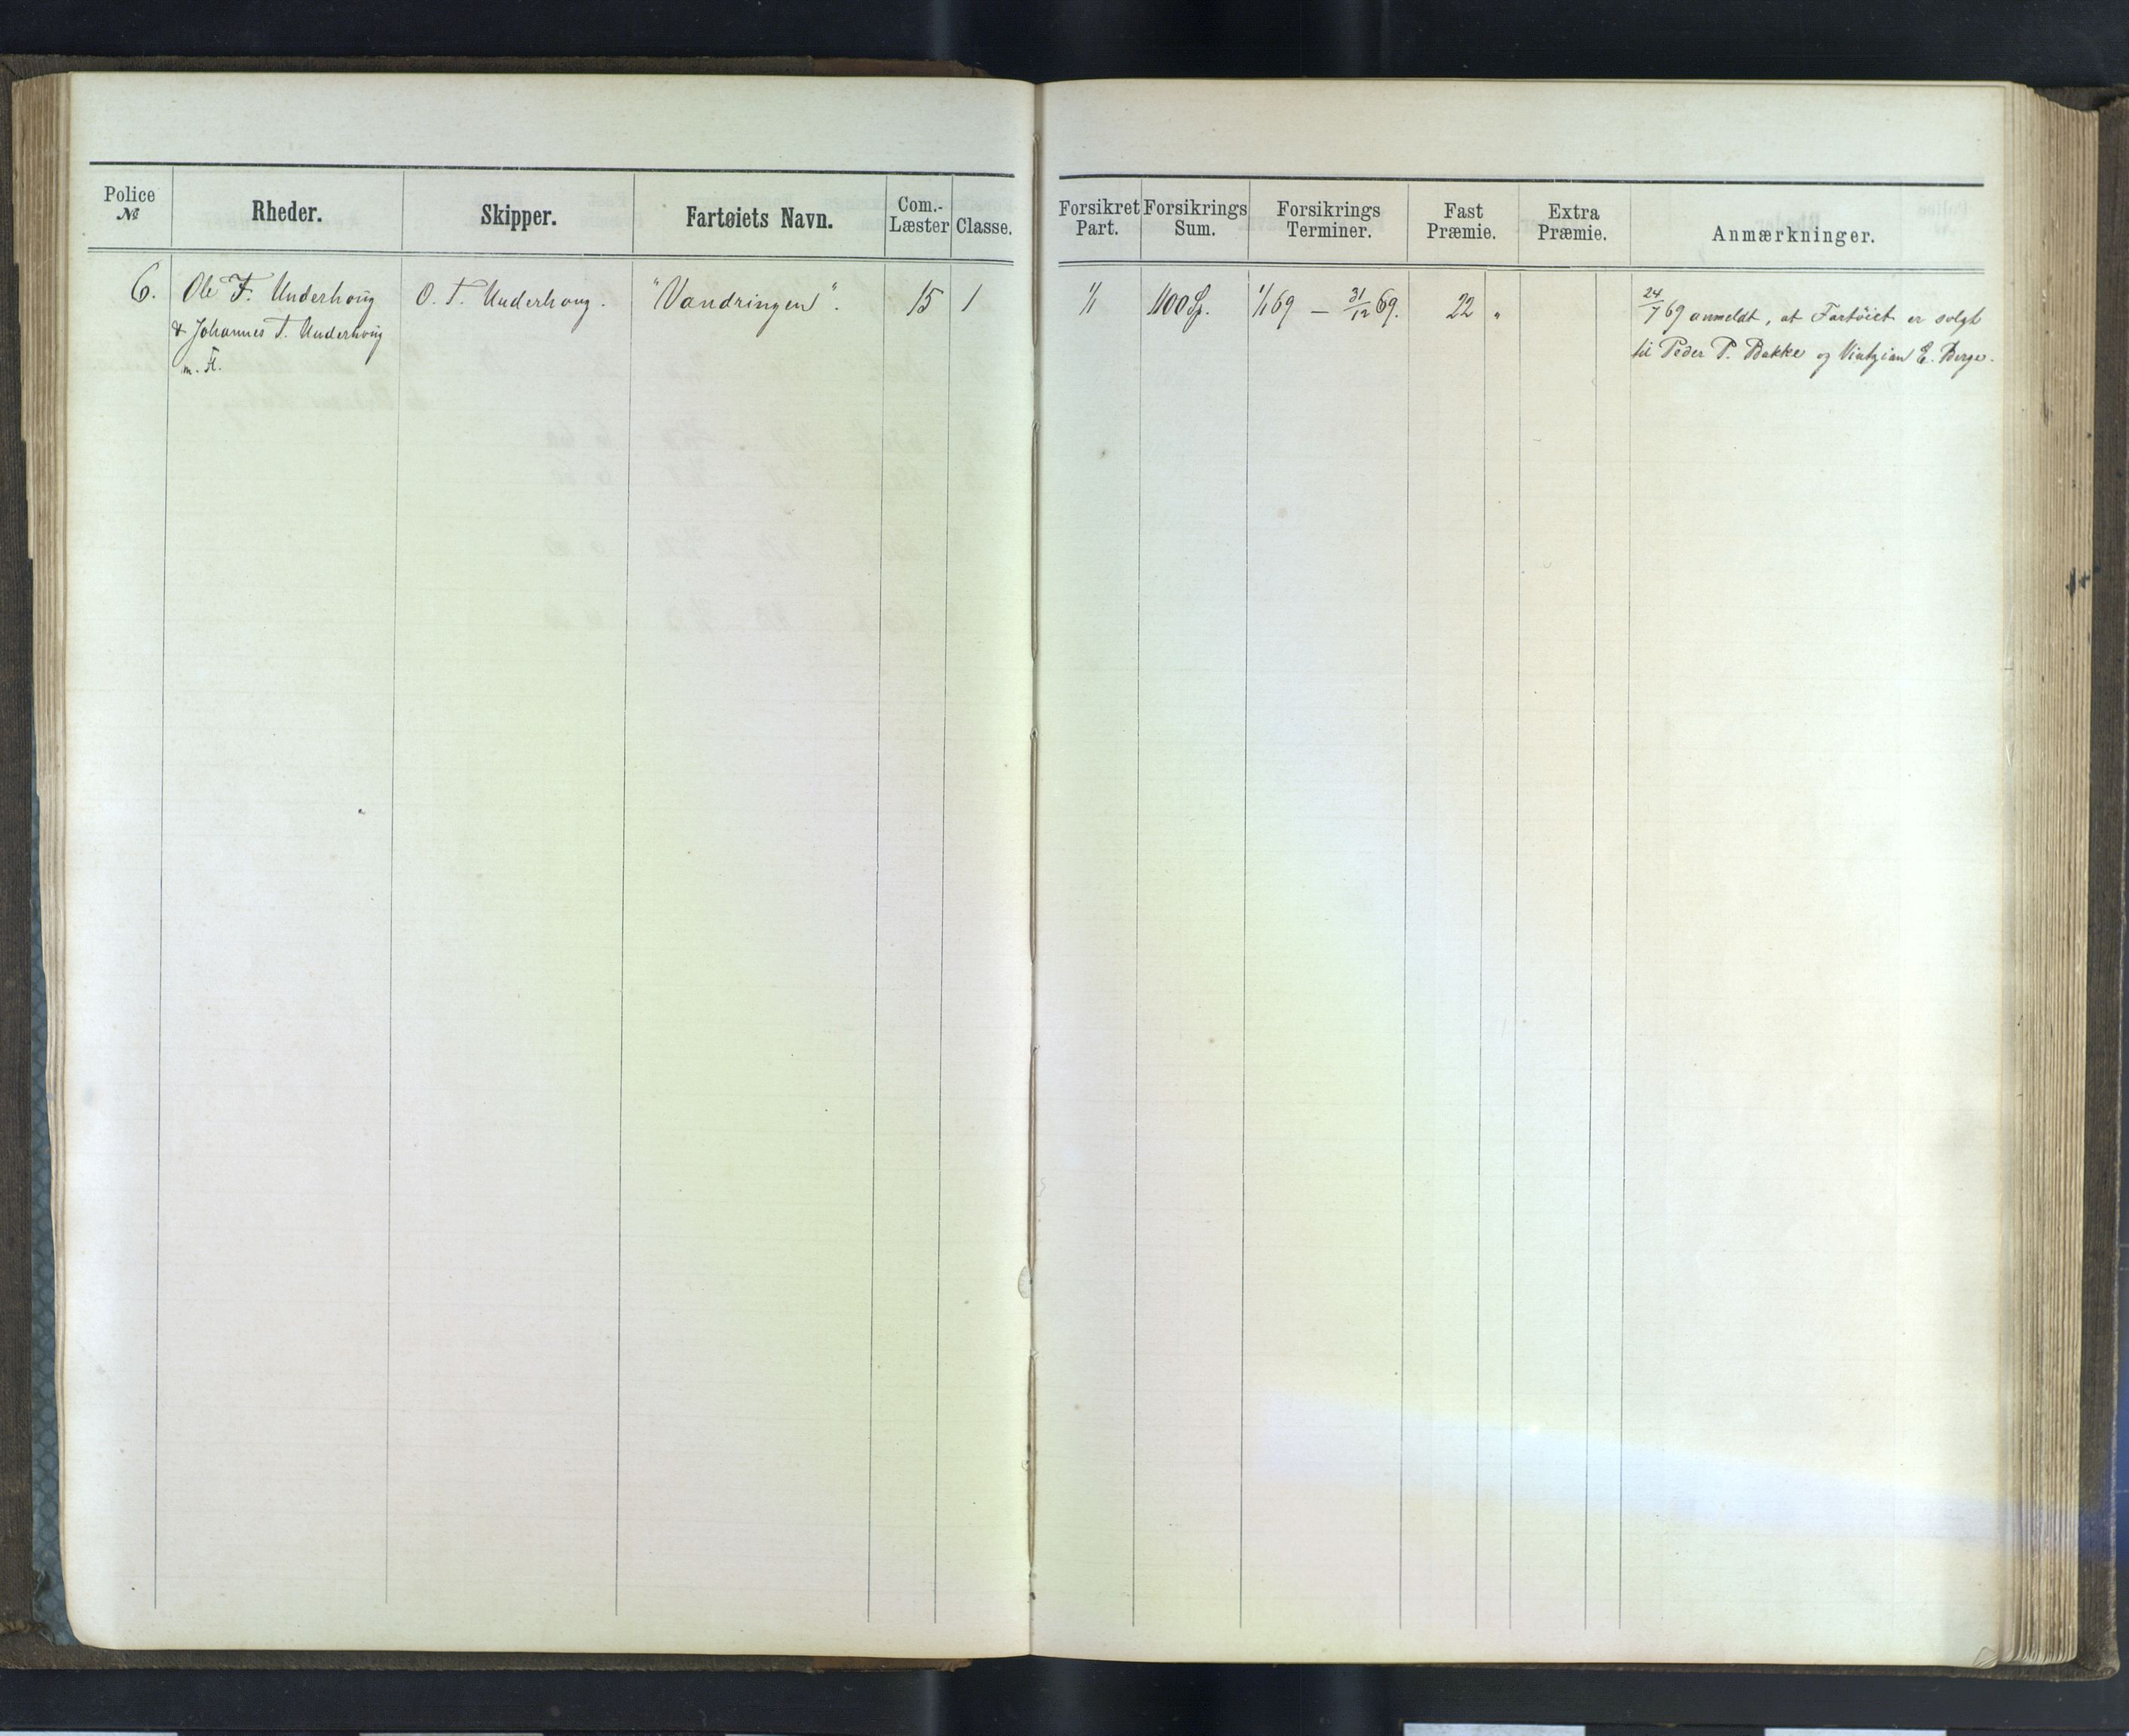 Police № Rheder. Skipper. Fartøiets Navn. Com.-Læster Classe. Forsikret Part. Forsikrings Sum. Forsikrings Terminer. Fast Præmie. Extra Præmie. Anmærkninger.
6. Ole T. Underhoug O. T. Underhoug. "Vandringen". 15 1 1/1 1100 Sp. 1/1 69 — 31/12 69. 22 " 24/7 69 anmeldt, at Fartöiet er solgt
& Johannes T. Underhoug til Peder P. Bakke og E. Berge.
m. Fl.